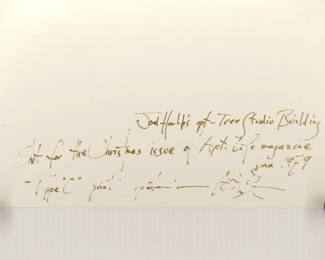 Joel Hall's apt - Tree Studio Building
Shot for the Christmas issue of Apt. Life magazine
1979
"Type C" print